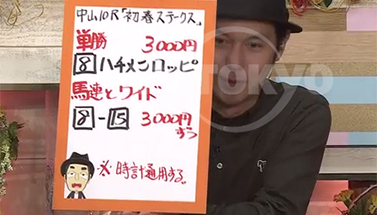 中山10R「初春ステークス」
単勝 3000円
8 ハチメンロッピ
馬連とワイド
8-15 3000円
ずつ
※時計通用する。
TOKYO